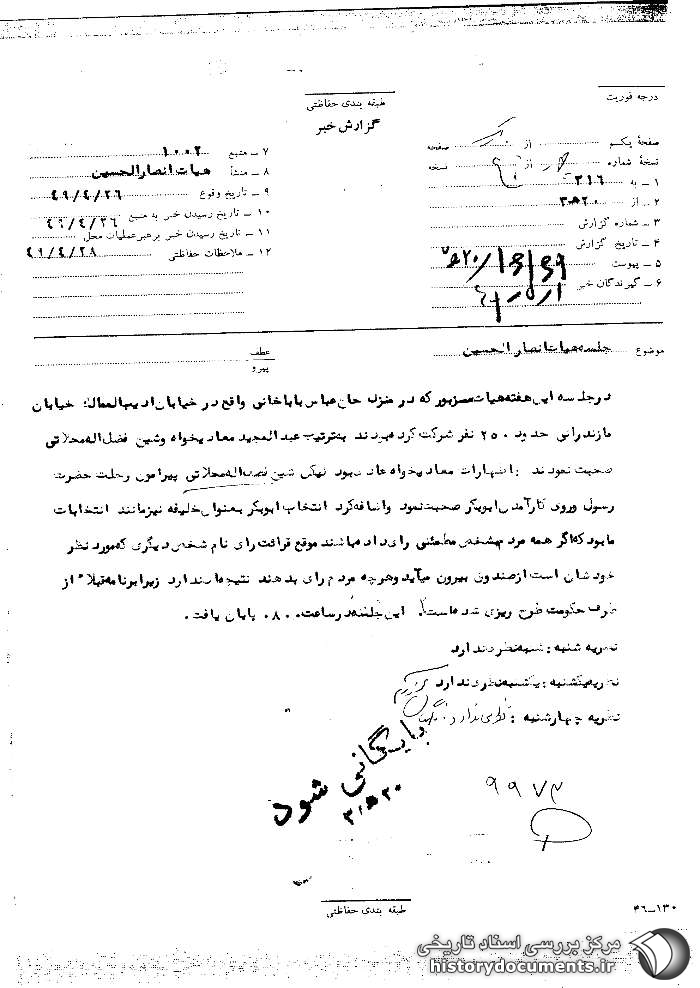 درجه فوریت
طبقه بندی حفاظتی
گزارش خبر
صفحهٔ یکم از صفحه
نسخهٔ شماره از نسخه
۱ - به ۳۱۶
۲ - از ۲۰ه۳
۳ - شماره گزارش
۴ - تاریخ گزارش
۵ - پیوست
۶ - گیرندگان خبر
۷ - منبع ۱۰۰۲
۸ - منشأ هیات انصارالحسین
۹ - تاریخ وقوع ۴۹/۴/۲۶
۱۰ - تاریخ رسیدن خبر به منبع ۴۹/۴/۲۶
۱۱ - تاریخ رسیدن خبر برهبرعملیات محل
۱۲ - ملاحظات حفاظتی ۴۹/۴/۲۸
موضوع جلسه هیات انصار الحسین
عطف
پیرو
درجلسه این هفته هیات مزبور که در منزل حاج عباس باباخانی واقع در خیابان ادیب الممالک خیابان
مازندرانی حدود ۲۵۰ نفر شرکت کرده بودند بترتیب عبدالمجید معادیخواه وشیخ فضل اله محلاتی
صحبت نمودند اظهارات معادیخواه عادی بود لیکن شیخ فضل اله محلاتی پیرامون رحلت حضرت
رسول وروی کارآمدن ابوبکر صحبت نمود واضافه کرد انتخاب ابوبکر بعنوان خلیفه نیز مانند انتخابات
ما بود که اگر همه مردم بشخص مطمئنی رای داده باشند موقع قرائت رای نام شخص دیگری که مورد نظر
خودشان است از صندوق بیرون میآید وهرچه مردم رای بدهند نتیجه ندارد زیرا برنامه قبلاً از
طرف حکومت طرح ریزی شده است. این جلسه در ساعت ۰۸۰۰ پایان یافت.
نظریه شنبه : شنبه نظری ندارد
نظریه یکشنبه : یکشنبه نظری ندارد
نظریه چهارشنبه : نظری ندارد
بایگانی شود
۲۰ه۳۱
۹۹۷۳
طبقه بندی حفاظتی
۴۶-۱۳۰
مرکز بررسی اسناد تاریخی
historydocuments.ir